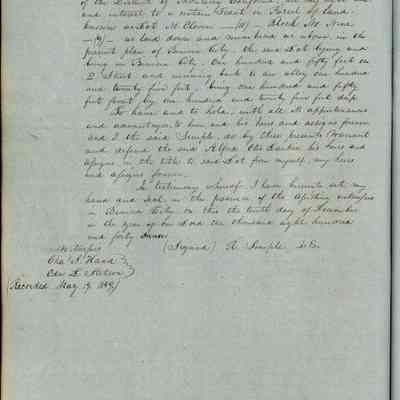 of the District of Monterey California, all my
and interest to a certain Tract or Parcel of Land,
known as Lot No Eleven —(11)— Block No Nine
—(9)— as laid down and numbered as above in the
present plan of Benicia City. the said Lot lying and
being in Benicia City. One hundred and fifty feet on
D Street and running back to an alley one hundred
and twenty five feet. being one hundred and fifty
feet front by one hundred and twenty five feet deep.
To have and to hold, with all its appurtenances
and advantages to him and his heirs and assigns forever
and I the said Semple, do by these presents Warrant
and defend the said Alfred his heirs and
assigns in the title to said Lot from myself, my heirs
and assigns forever.
In testimony whereof I have hereunto set my
hand and seal in the presence of the
in Benicia City on this the tenth day of December
in the year of our Lord one thousand eight hundred
and forty
Witnesses (Signed) R. Semple
Chas. S. Hand
Edw.
(Recorded May 17